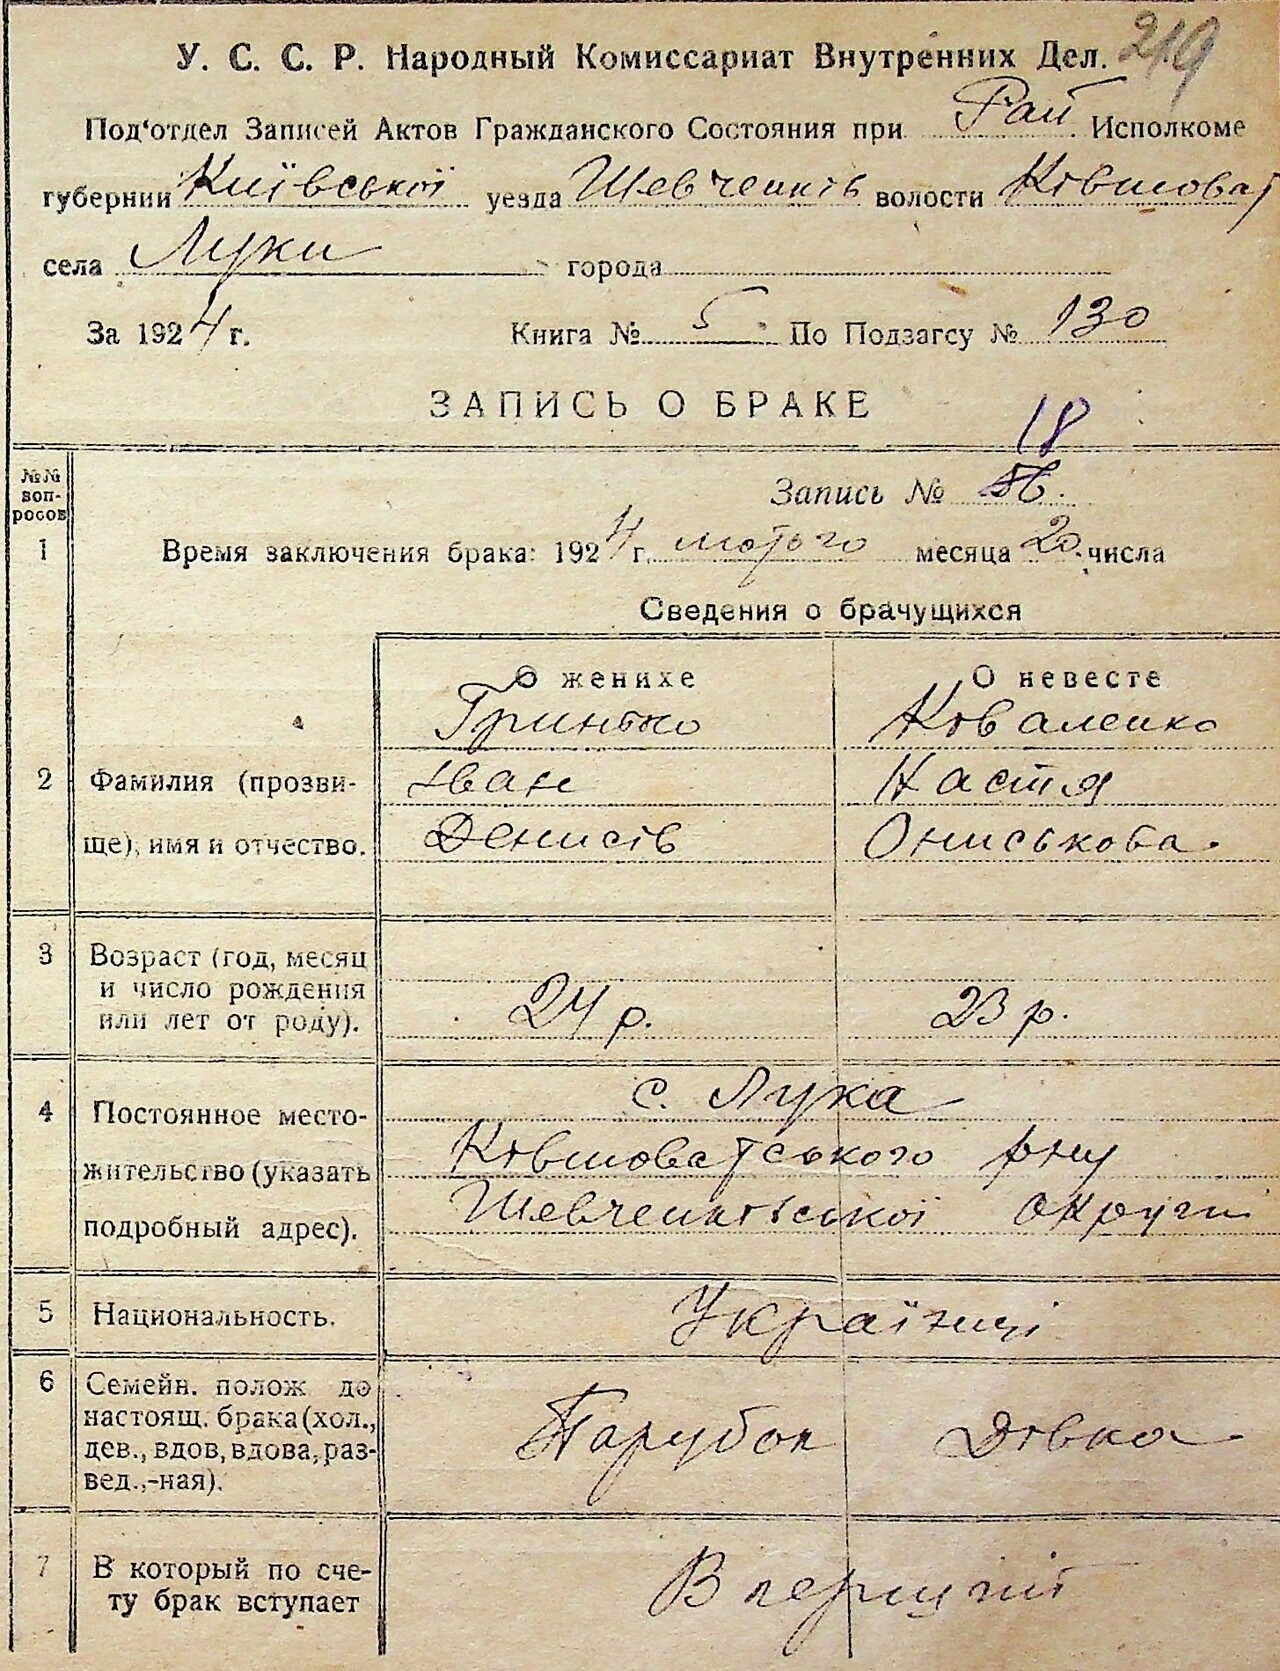 219
У. С. С. Р. Народный Комиссариат Внутренних Дел.
Под'отдел Записей Актов Гражданского Состояния при Рай Исполкоме
губернии Київської уезда Шевченків волости Ківшоват
села Луки города
За 1924 г. Книга № 5 По Подзагсу № 130
ЗАПИСЬ О БРАКЕ
18
№№ вопросов
Запись №
1 Время заключения брака: 1924 г. лютого месяца 20 числа
Сведения о брачущихся
О женихе О невесте
Гринько Коваленко
2 Фамилия (прозви- Іван Настя
ще), имя и отчество. Денисів Ониськова.
3 Возраст (год, месяц
и число рождения 24 р. 23 р.
или лет от роду).
с. Лука
4 Постоянное место-
жительство (указать Ківшоватського рну
подробный адрес). Шевченківської округи
5 Национальность. Українці
6 Семейн. полож. до
настоящ. брака (хол.,
дев., вдов, вдова, раз- Парубок Дівка
вед.,-ная).
7 В который по сче- Вперший
ту брак вступает